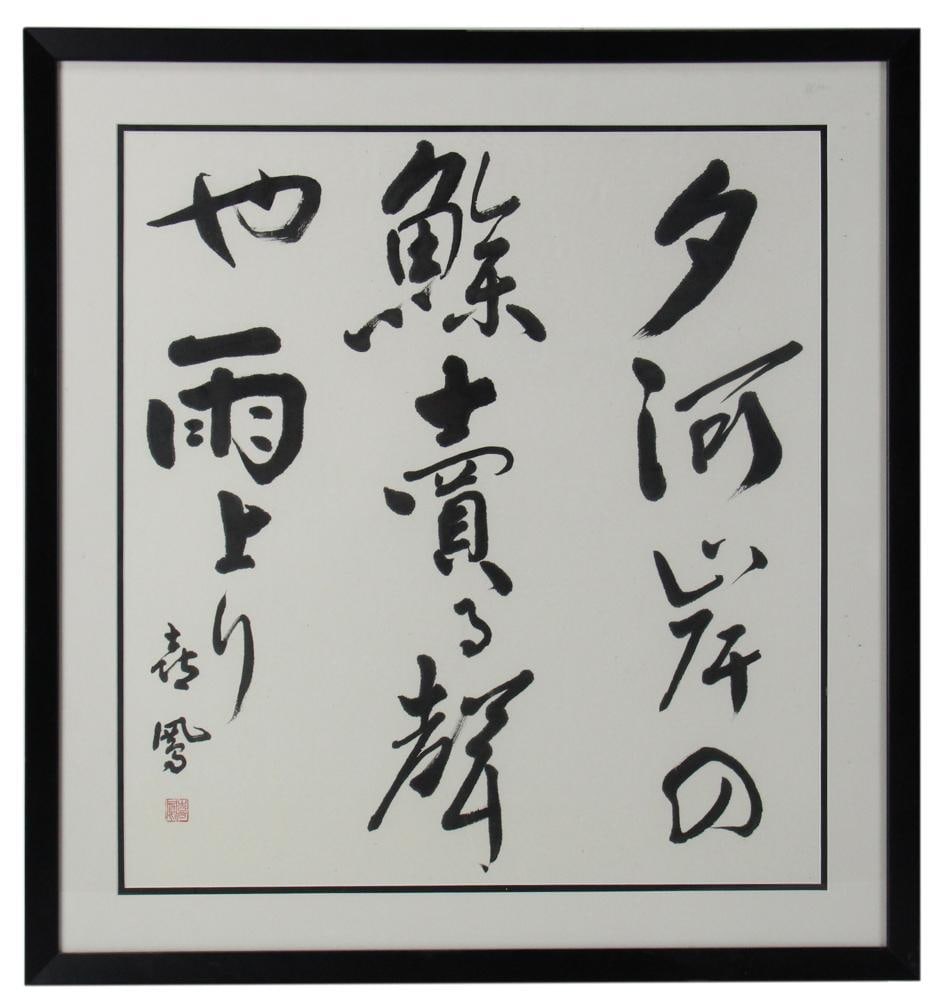 夕河岸の
鯵賣る聲
や雨上り
喜鳳